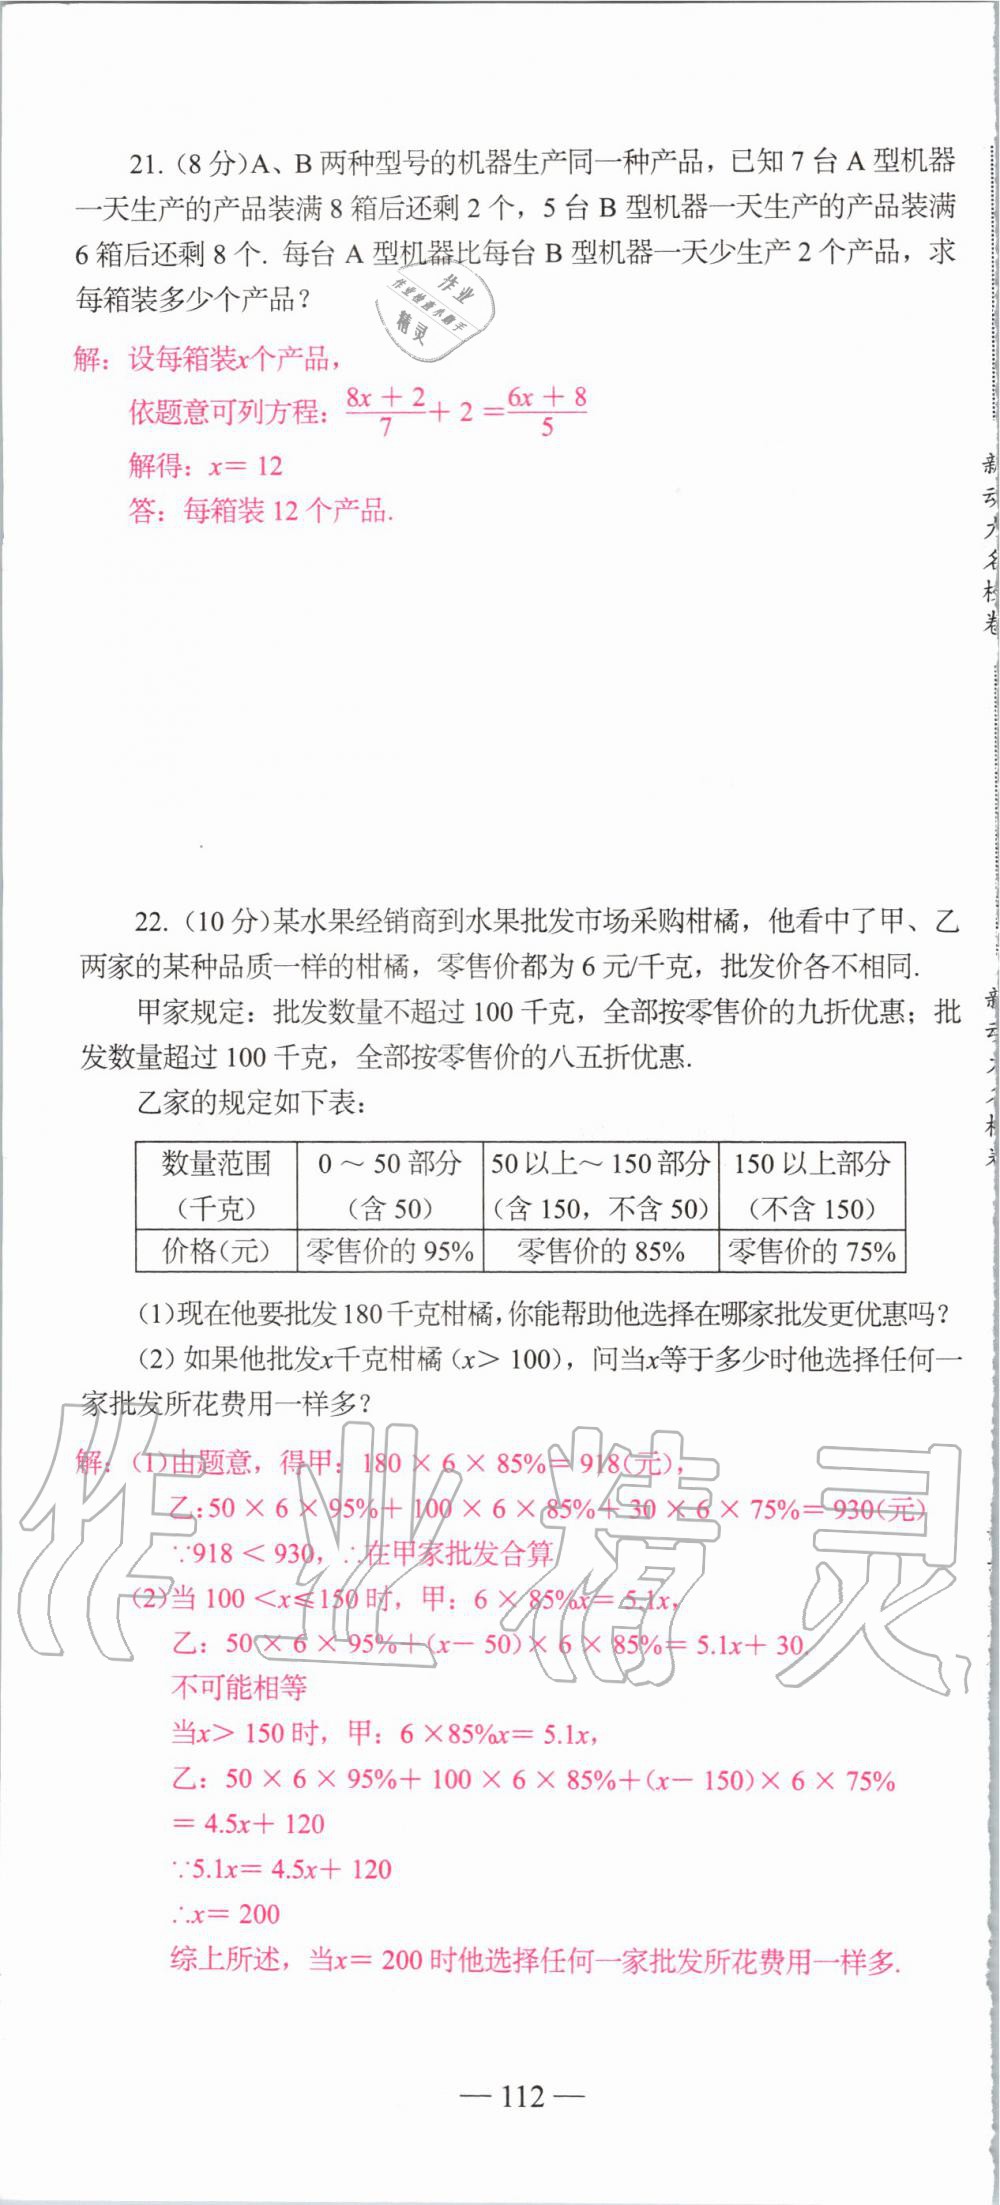 21.（8分）A、B两种型号的机器生产同一种产品，已知7台A型机器
一天生产的产品装满8箱后还剩2个，5台B型机器一天生产的产品装满
6箱后还剩8个. 每台A型机器比每台B型机器一天少生产2个产品，求
每箱装多少个产品？
作业
作业检查小助手
精灵
解：设每箱装x个产品，
依题意可列方程：(8x＋2)/7＋2＝(6x＋8)/5
解得：x＝12
答：每箱装12个产品.
22.（10分）某水果经销商到水果批发市场采购柑橘，他看中了甲、乙
两家的某种品质一样的柑橘，零售价都为6元/千克，批发价各不相同.
甲家规定：批发数量不超过100千克，全部按零售价的九折优惠；批
发数量超过100千克，全部按零售价的八五折优惠.
乙家的规定如下表：
数量范围 0～50部分 50以上～150部分 150以上部分
（千克） （含50） （含150，不含50） （不含150）
价格（元） 零售价的95% 零售价的85% 零售价的75%
(1)现在他要批发180千克柑橘，你能帮助他选择在哪家批发更优惠吗？
(2) 如果他批发x千克柑橘（x＞100），问当x等于多少时他选择任何一
家批发所花费用一样多？
解：(1)由题意，得甲：180×6×85%＝918(元)，
乙：50×6×95%＋100×6×85%＋30×6×75%＝930(元)
∵918＜930，∴在甲家批发合算
(2)当100＜x≤150时，甲：6×85%x＝5.1x，
乙：50×6×95%＋(x－50)×6×85%＝5.1x＋30.
不可能相等
当x＞150时，甲：6×85%x＝5.1x，
乙：50×6×95%＋100×6×85%＋(x－150)×6×75%
＝4.5x＋120
∵5.1x＝4.5x＋120
∴x＝200
综上所述，当x＝200时他选择任何一家批发所花费用一样多.
作业精灵
— 112 —